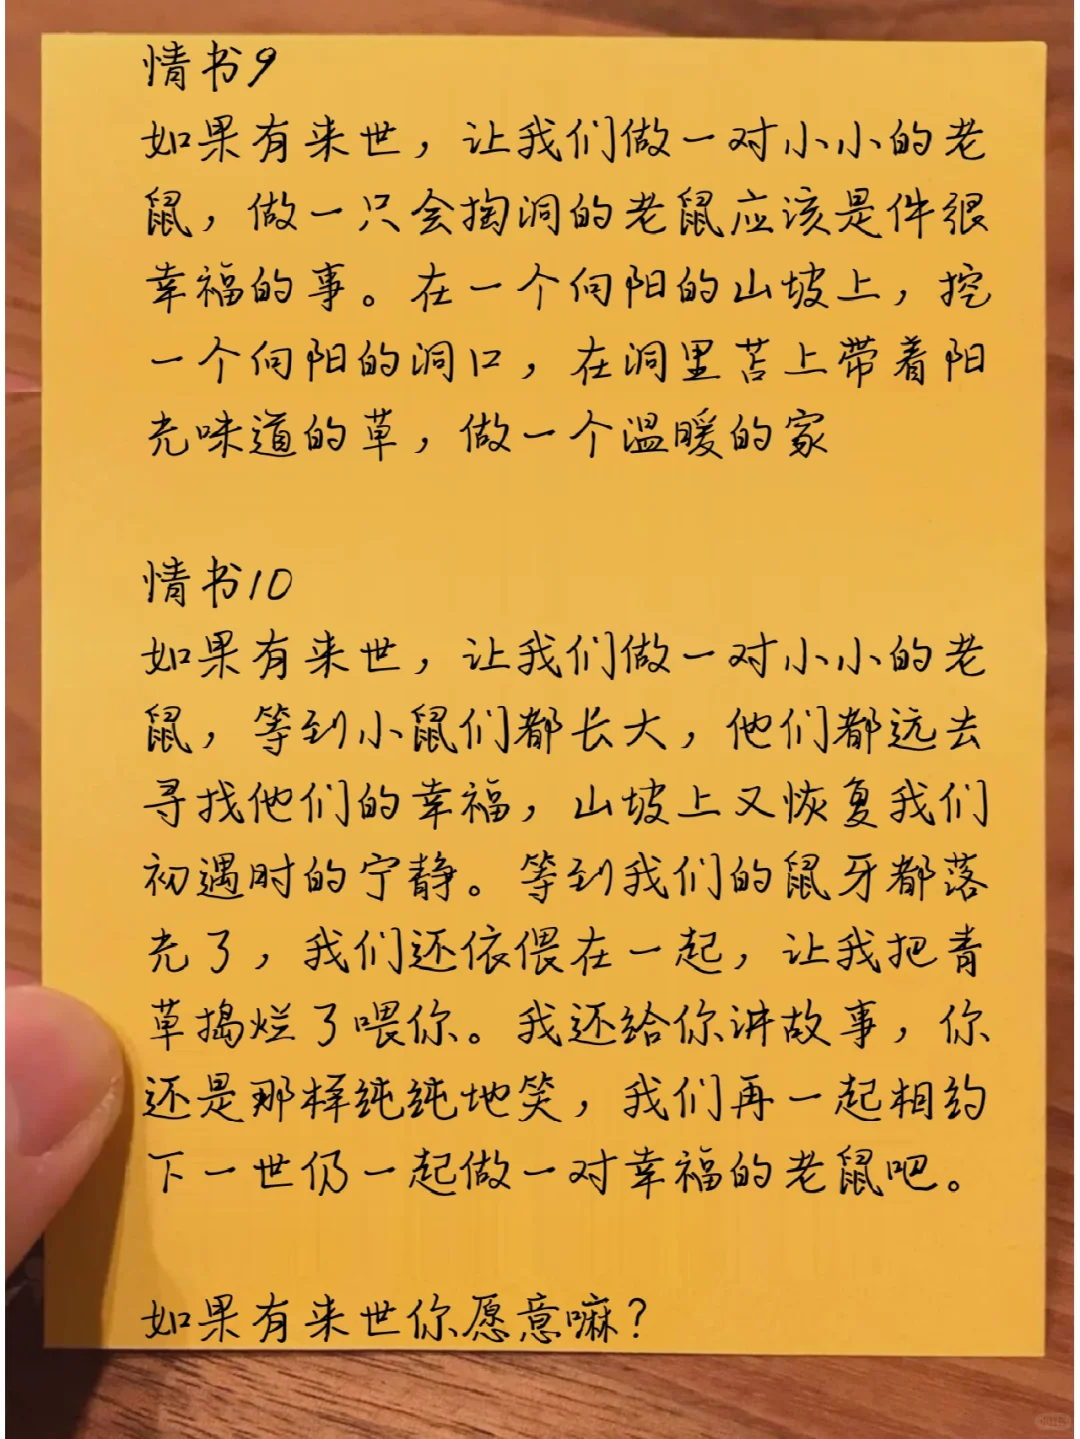 情书9
如果有来世，让我们做一对小小的老
鼠，做一只会掏洞的老鼠应该是件很
幸福的事。在一个向阳的山坡上，挖
一个向阳的洞口，在洞里苫上带着阳
光味道的草，做一个温暖的家
情书10
如果有来世，让我们做一对小小的老
鼠，等到小鼠们都长大，他们都远去
寻找他们的幸福，山坡上又恢复我们
初遇时的宁静。等到我们的鼠牙都落
光了，我们还依偎在一起，让我把青
草捣烂了喂你。我还给你讲故事，你
还是那样纯纯地笑，我们再一起相约
下一世仍一起做一对幸福的老鼠吧。
如果有来世你愿意嘛？